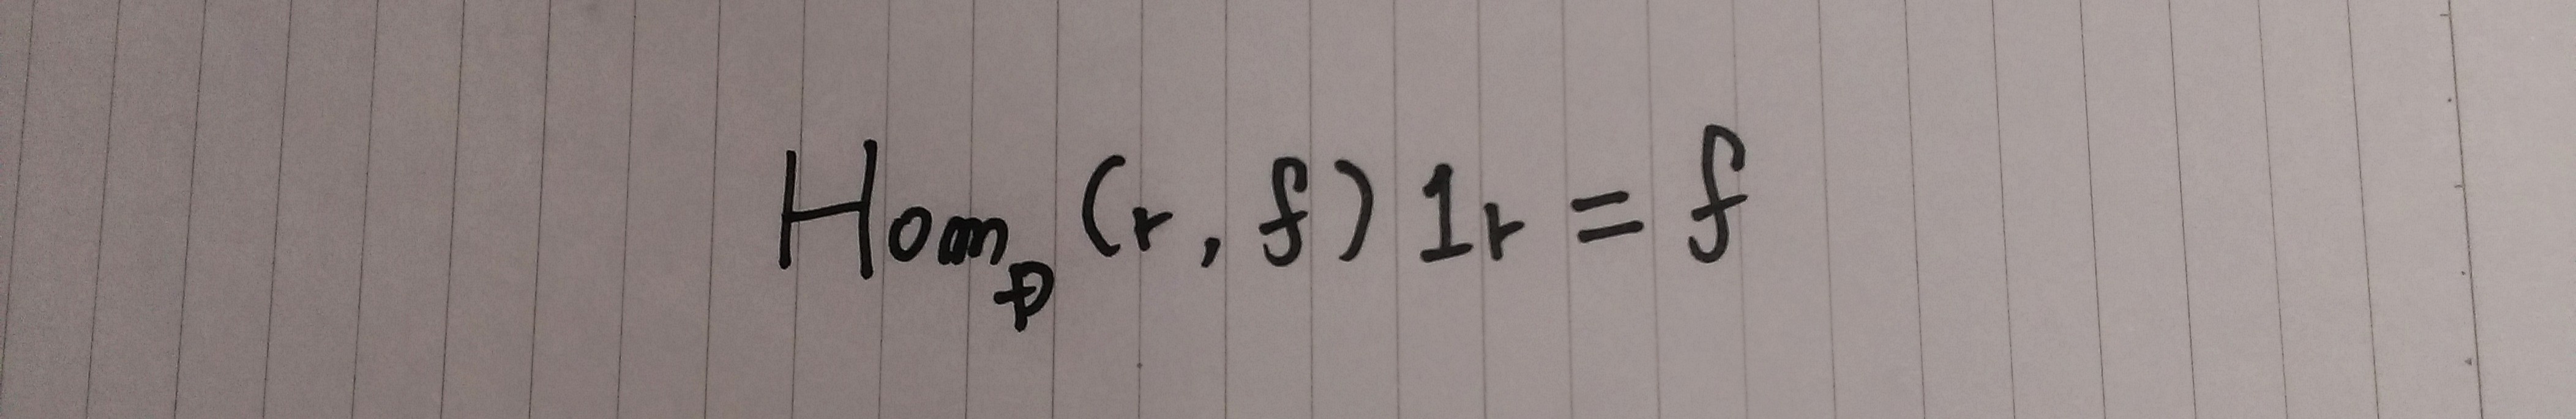 Hom_D (r, f) 1r = f